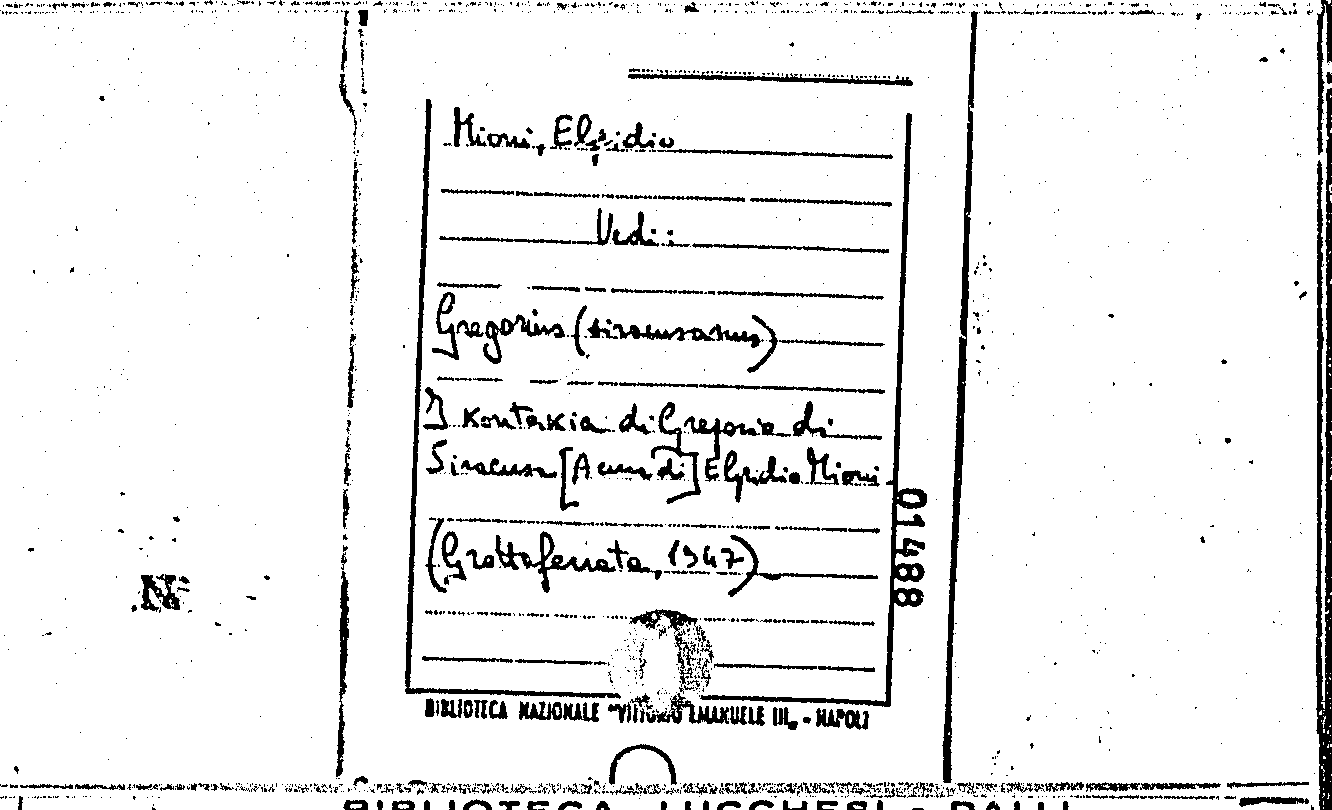 Mioni, Elpidio
Vedi:
Gregorius (siracusanus)
I Kontakia di Gregorio di
Siracusa [A cura di] Elpidio Mioni.
(Grottaferrata, 1947)
01488
No
BIBLIOTECA NAZIONALE "VITTORIO EMANUELE III" - NAPOLI
BIBLIOTECA LUCCHESI - PALLI